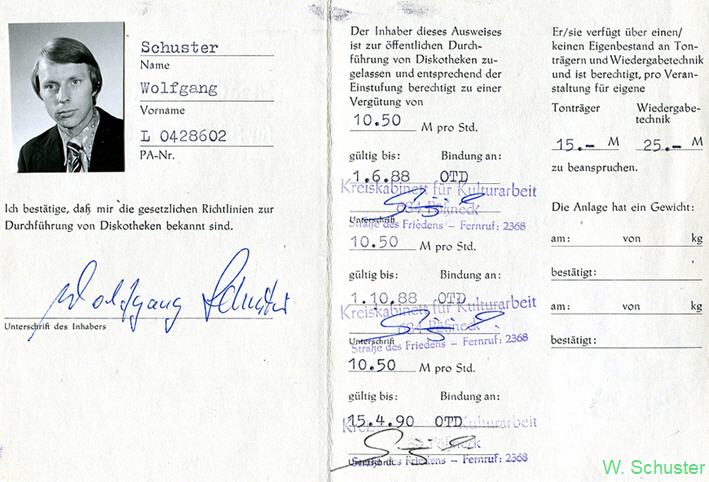 Schuster
Name
Wolfgang
Vorname
L 0428602
PA-Nr.
Ich bestätige, daß mir die gesetzlichen Richtlinien zur
Durchführung von Diskotheken bekannt sind.
Wolfgang Schuster
Unterschrift des Inhabers
Der Inhaber dieses Ausweises
ist zur öffentlichen Durch-
führung von Diskotheken zu-
gelassen und entsprechend der
Einstufung berechtigt zu einer
Vergütung von
10.50 M pro Std.
gültig bis: Bindung an:
1.6.88 OTD
Kreiskabinett für Kulturarbeit
Pößneck
Unterschrift
Straße des Friedens - Fernruf: 2368
10.50 M pro Std.
gültig bis: Bindung an:
1.10.88 OTD
Kreiskabinett für Kulturarbeit
Pößneck
Unterschrift
Straße des Friedens - Fernruf: 2368
10.50 M pro Std.
gültig bis: Bindung an:
15.4.90 OTD
Kulturarbeit
Unterschrift
Straße des Friedens - Fernruf: 2368
Er/sie verfügt über einen/
keinen Eigenbestand an Ton-
trägern und Wiedergabetechnik
und ist berechtigt, pro Veran-
staltung für eigene
Tonträger Wiedergabe-
technik
15.- M 25.- M
zu beanspruchen.
Die Anlage hat ein Gewicht:
am: von kg
bestätigt:
am: von kg
bestätigt:
W. Schuster